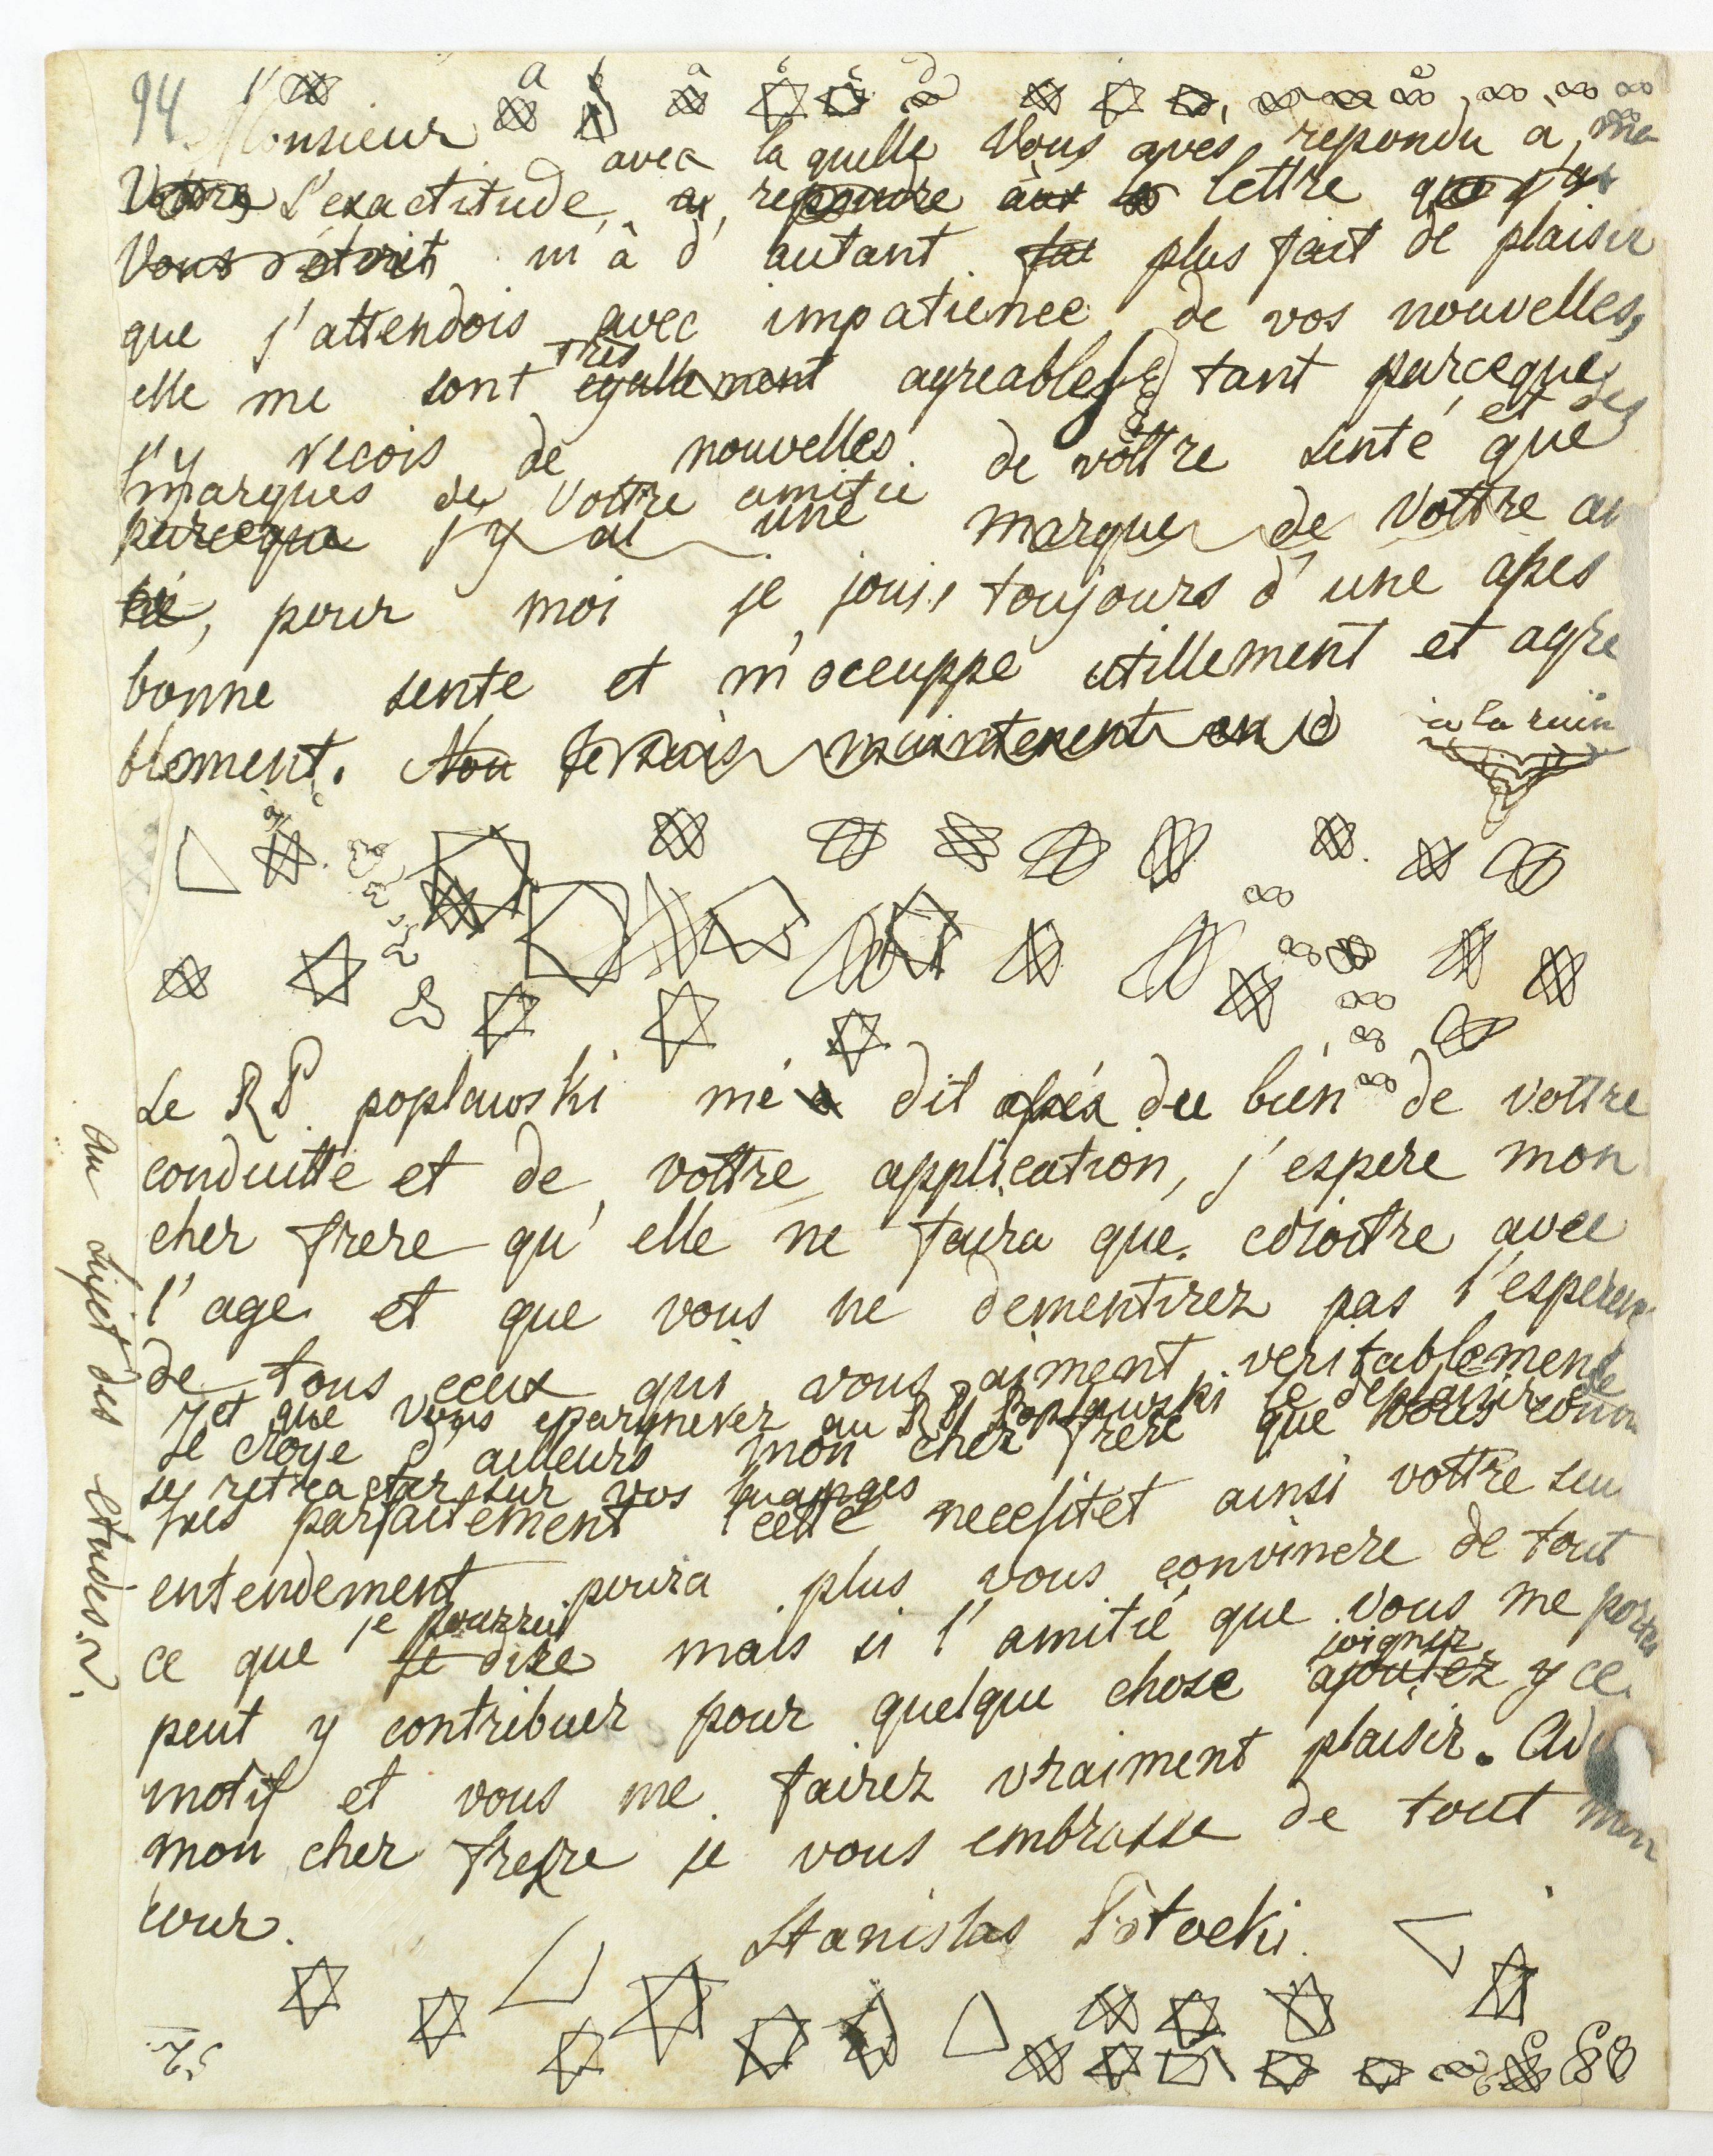 94
Monsieur
avec la quelle Vous aves repondu a ma
Votre L'exactitude, a repondre aux lettre que j'ai
Vous d'etorit m'â d'autant plus fait de plaisir
que j'attendois avec impatience de vos nouvelles,
très
elle me sont egallement agreables tant parceque
et des
j'y recois de nouvelles de vottre senté que
marques de Vottre amitie
parceque j'y ai une marque de Vottre
tié, pour moi je jouis toujours d'une asses
bonne sente et m'occuppe utillement et agre
blement. Non Je vais maintenent en
a la ruin
Le RP poplawski mé a dit assés du bien de vottre
conduitte et de vottre application, j'espere mon
cher frere qu'elle ne faira que croitre avec
l'age et que vous ne dementirez pas l'esperen
de tous ceux qui vous aiment veritablement
et que Vous epargnerez au RP Poplawski le deplaisir de
Je croye d'ailleurs mon cher frere que vous conno
se retracter sur vos louanges
sses parfaitement cette necessitet ainsi vottre seu
entendement poura plus vous convincre de tout
je pourrai
ce que je dire mais si l'amitié que vous me portes
joignez
peut y contribuer pour quelque chose ajoutez y ce
motif et vous me fairez vraiment plaisir. Adi
mon cher frere je vous embrasse de tout mon
cour.
Stanislas Potocki.
au sujet des etudes.